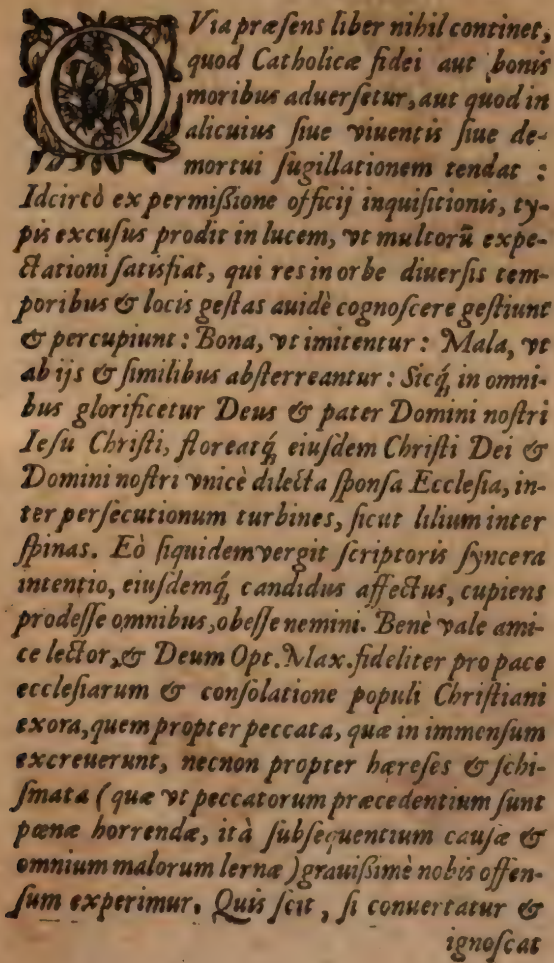 QVia præſens liber nihil continet,
quod Catholicæ fidei aut bonis
moribus aduerſetur, aut quod in
alicuius ſiue viuentis ſiue de-
mortui ſugillationem tendat :
Idcircò ex permiſſione officij inquiſitionis, ty-
pis excuſus prodit in lucem, vt multorū expe-
ctationi ſatisfiat, qui res in orbe diuerſis tem-
poribus & locis geſtas auidè cognoſcere geſtiunt
& percupiunt : Bona, vt imitentur : Mala, vt
ab ijs & ſimilibus abſterreantur : Sicq́; in omni-
bus glorificetur Deus & pater Domini noſtri
Ieſu Chriſti, floreatq́; eiuſdem Chriſti Dei &
Domini noſtri vnicè dilecta ſponſa Eccleſia, in-
ter perſecutionum turbines, ſicut lilium inter
ſpinas. Eò ſiquidem vergit ſcriptoris ſyncera
intentio, eiuſdemq́; candidus affectus, cupiens
prodeſſe omnibus, obeſſe nemini. Benè vale ami-
ce lector, & Deum Opt. Max. fideliter pro pace
eccleſiarum & conſolatione populi Chriſtiani
exora, quem propter peccata, quæ in immenſum
excreuerunt, necnon propter hæreſes & ſchi-
ſmata (quæ vt peccatorum præcedentium ſunt
pœnæ horrendæ, ità ſubſequentium cauſæ &
omnium malorum lernæ) grauiſſimè nobis offen-
ſum experimur. Quis ſcit, ſi conuertatur &
ignoſcat